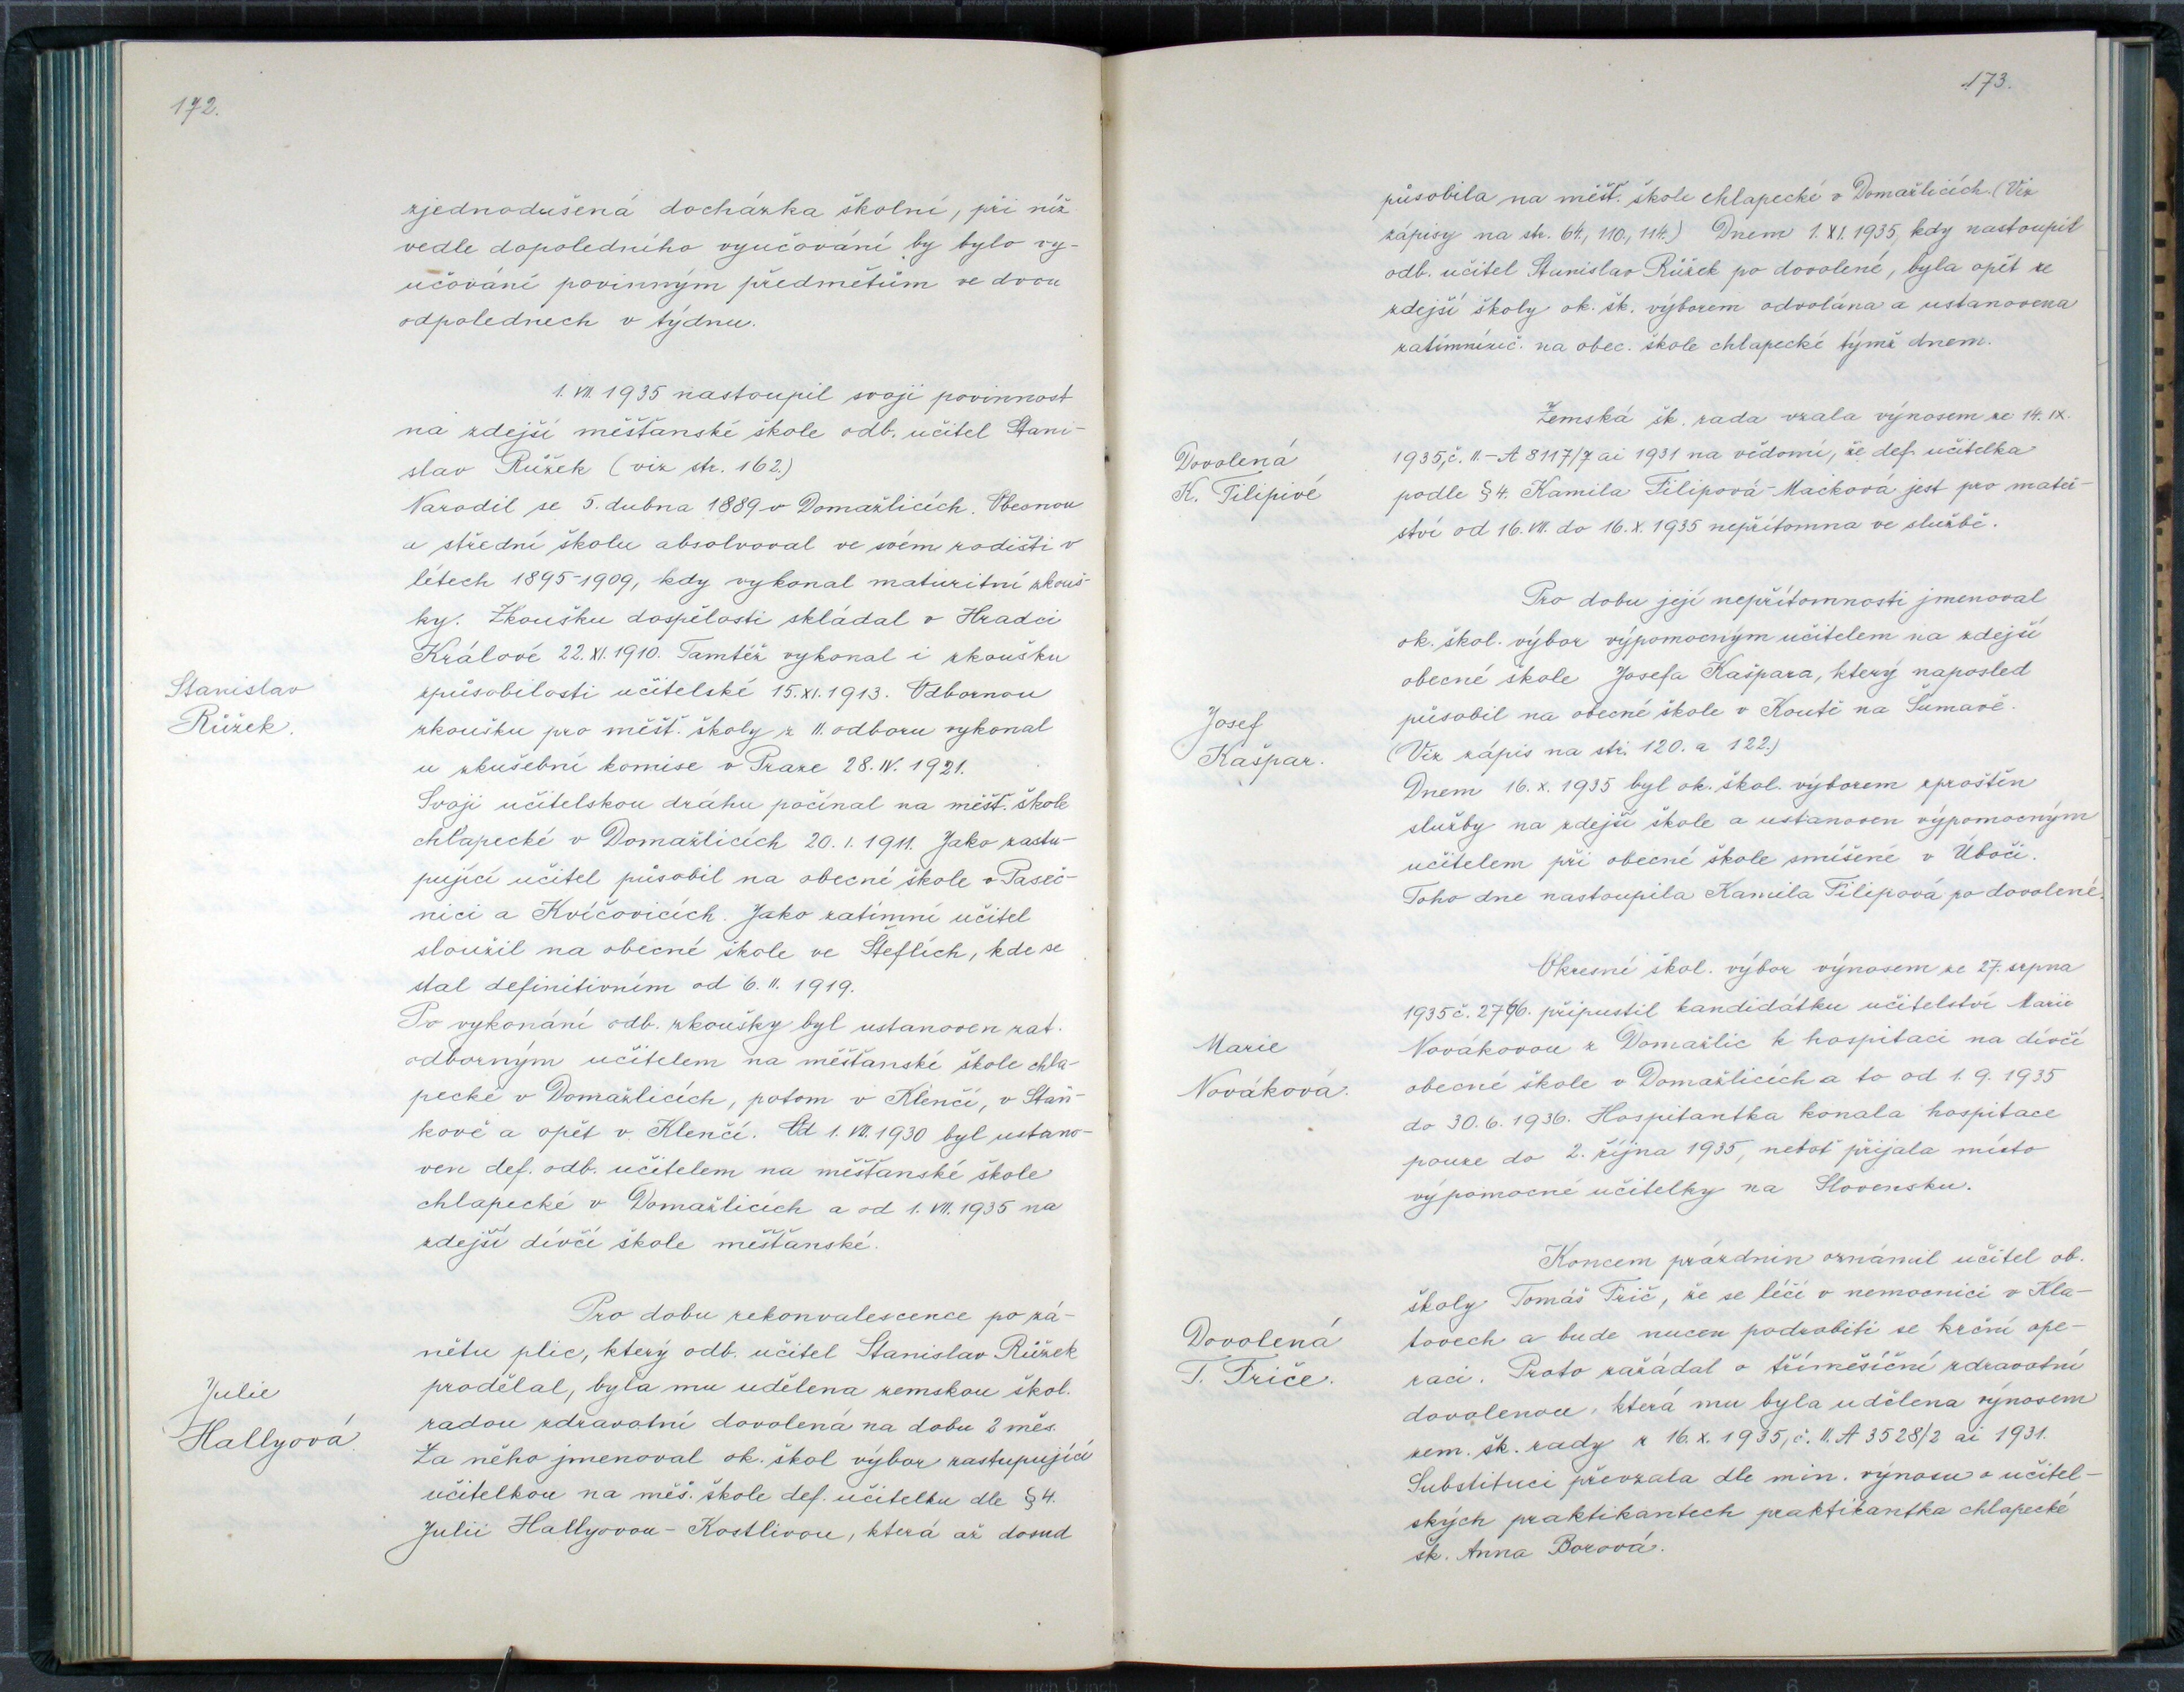 172.
zjednodušená docházka školní, při níž
vedle dopoledního vyučování by bylo vy-
učování povinným předmětům ve dvou
odpolednech v týdnu.
1. VII. 1935 nastoupil svoji povinnost
na zdejší měšťanské škole odb. učitel Stani-
slav Růžek (viz str. 162.)
Narodil se 5. dubna 1889 v Domažlicích. Obecnou
a střední školu absolvoval ve svém rodišti v
létech 1895-1909, kdy vykonal maturitní zkouš-
ky. Zkoušku dospělosti skládal v Hradci
Králové 22. XI. 1910. Tamtéž vykonal i zkoušku
Stanislav
Růžek.
způsobilosti učitelské 15. XI. 1913. Odbornou
zkoušku pro měšť. školy z II. odboru vykonal
u zkušební komise v Praze 28. IV. 1921.
Svoji učitelskou dráhu počínal na měšť. škole
chlapecké v Domažlicích 20. I. 1911. Jako zastu-
pující učitel působil na obecné škole v Paseč-
nici a Kvíčovicích. Jako zatímní učitel
sloužil na obecné škole ve Šteflích, kde se
stal definitivním od 6. II. 1919.
Po vykonání odb. zkoušky byl ustanoven zat.
odborným učitelem na měšťanské škole chla-
pecké v Domažlicích, potom v Klenčí, v Staň-
kově a opět v Klenčí. Od 1. VII. 1930 byl ustano-
ven def. odb. učitelem na měšťanské škole
chlapecké v Domažlicích a od 1. VII. 1935 na
zdejší dívčí škole měšťanské.
Pro dobu rekonvalescence po zá-
nětu plic, který odb. učitel Stanislav Růžek
Julie
Hallyová
prodělal, byla mu udělena zemskou škol.
radou zdravotní dovolená na dobu 2 měs.
Za něho jmenoval ok. škol výbor zastupující
učitelkou na měš. škole def. učitelku dle § 4.
Julii Hallyovou - Kostlivou, která až dosud
173.
působila na měšť. škole chlapecké v Domažlicích. (Viz
zápisy na str. 64., 110., 114.) Dnem 1. XI. 1935, kdy nastoupil
odb. učitel Stanislav Růžek po dovolené, byla opět ze
zdejší školy ok. šk. výborem odvolána a ustanovena
zatímní uč. na obec. škole chlapecké týmž dnem.
Zemská šk. rada vzala výnosem ze 14. IX.
Dovolená
K. Filipivé
1935, č. II. - A 8117/7 ai 1931 na vědomí, že def. učitelka
podle § 4. Kamila Filipová-Macková jest pro mateř-
ství od 16. VII. do 16. X. 1935 nepřítomna ve službě.
Pro dobu její nepřítomnosti jmenoval
ok. škol. výbor výpomocným učitelem na zdejší
obecné škole Josefa Kašpara, který naposled
Josef
Kašpar.
působil na obecné škole v Koutě na Šumavě.
(Viz zápis na str. 120. a 122.)
Dnem 16. X. 1935 byl ok. škol. výborem zproštěn
služby na zdejší škole a ustanoven výpomocným
učitelem při obecné škole smíšené v Úbočí.
Toho dne nastoupila Kamila Filipová po dovolené.
Okresní škol. výbor výnosem ze 27. srpna
1935 č. 2796. připustil kandidátku učitelství Marii
Marie
Nováková.
Novákovou z Domažlic k hospitaci na dívčí
obecné škole v Domažlicích a to od 1. 9. 1935
do 30. 6. 1936. Hospitantka konala hospitace
pouze do 2. října 1935, neboť přijala místo
výpomocné učitelky na Slovensku.
Koncem prázdnin oznámil učitel ob.
školy Tomáš Frič, že se léčí v nemocnici v Kla-
Dovolená
T. Friče.
tovech a bude nucen podrobiti se krční ope-
raci. Proto zažádal o tříměsíční zdravotní
dovolenou, která mu byla udělena výnosem
zem. šk. rady z 16. X. 1935, č. II. A 3528/2 ai 1931.
Substituci převzala dle min. výnosu o učitel-
ských praktikantech praktikantka chlapecké
šk. Anna Borová.